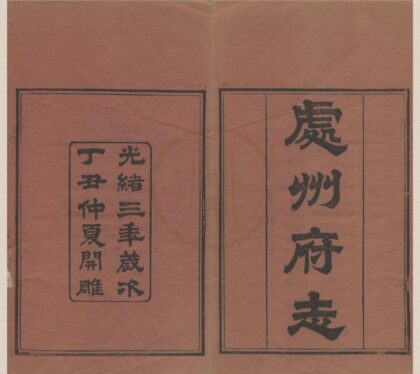 處州府志
光緒三年歲次
丁丑仲夏開雕